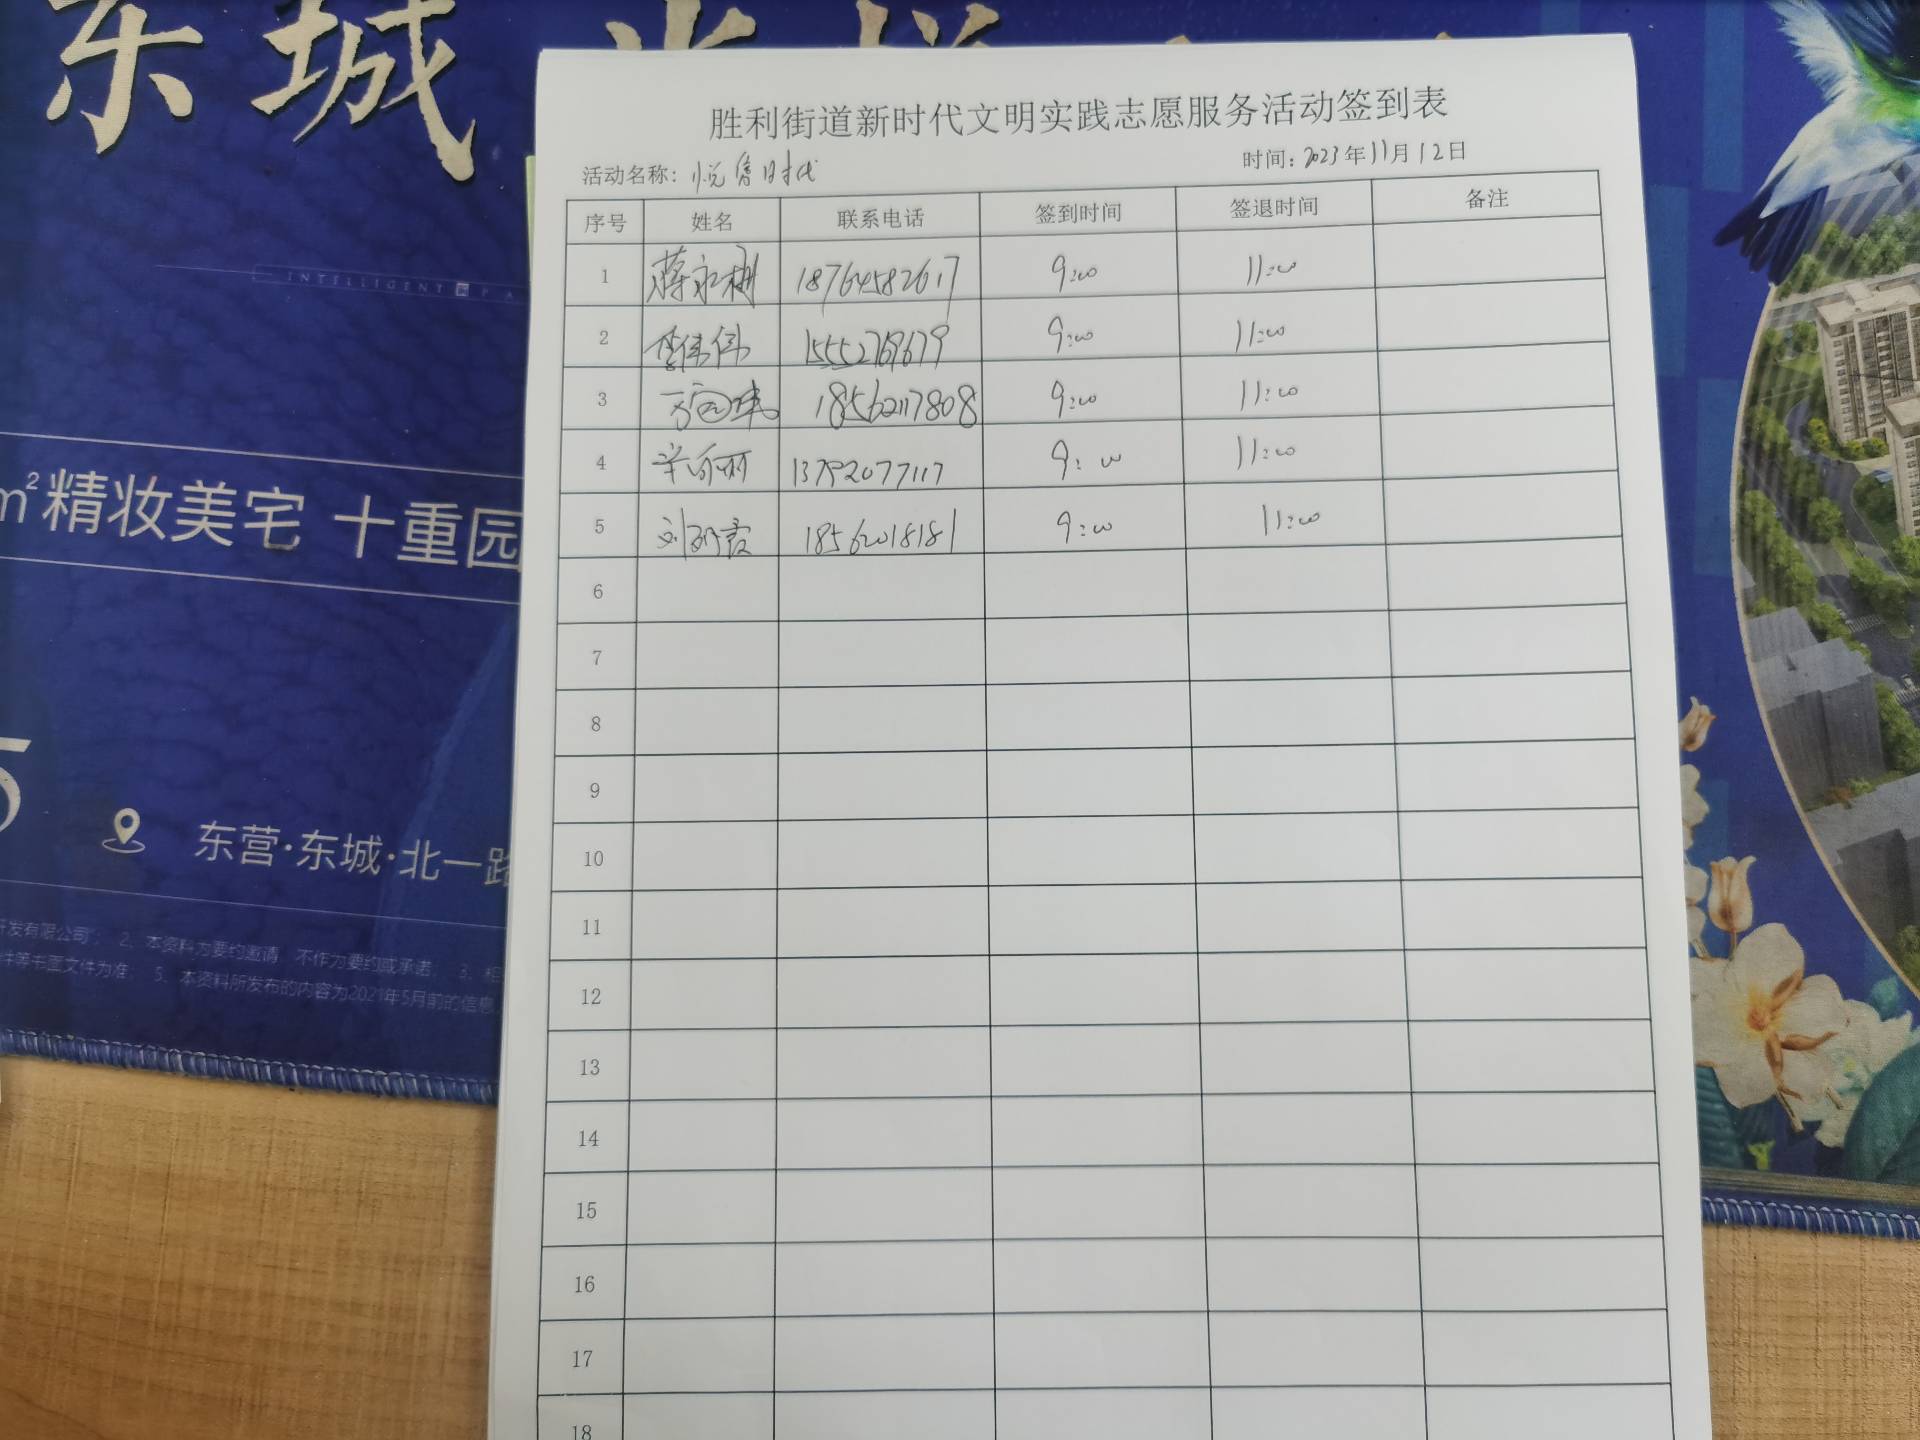 东城
INTELLIGENT
m²精妆美宅 十重园
5
东营·东城·北一路
开发有限公司"; 2、本资料为要约邀请,不作为要约或承诺; 3、相
件等书面文件为准; 5、本资料所发布的内容为2021年5月前的信息
胜利街道新时代文明实践志愿服务活动签到表
活动名称: 悦 时代 时间: 2023年11月12日
序号 姓名 联系电话 签到时间 签退时间 备注
1 蒋永彬 18764582617 9:00 11:00
2 李伟伟 15552769679 9:00 11:00
3 18562117808 9:00 11:00
4 13792077117 9:00 11:00
5 刘 霞 18562018181 9:00 11:00
6
7
8
9
10
11
12
13
14
15
16
17
18